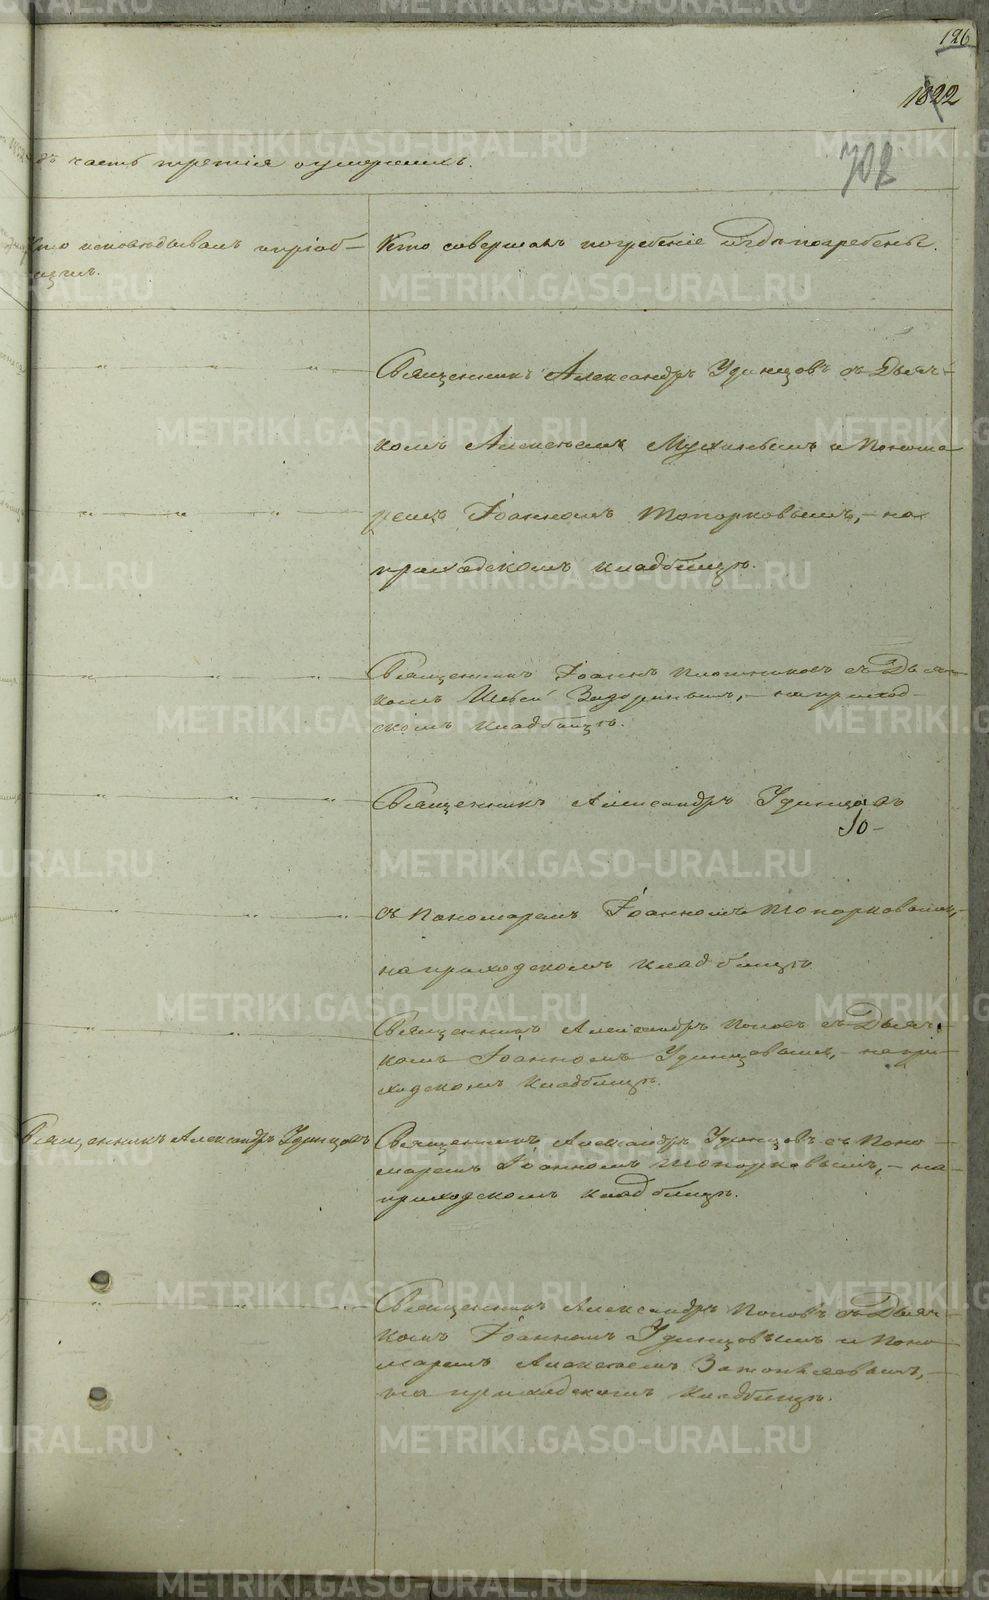 126
1822
702
дъ часть третія оумершихъ.
Кто исповѣдывалъ и пріоб-
щилъ.
Кто совершалъ погребеніе и гдѣ погребены.
Священникъ Александръ Удинцовъ съ Дьяч-
комъ Алексѣемъ Мухинымъ и Понома
ремъ Іоанномъ Топорковымъ, – на
приходскомъ кладбищѣ.
Священникъ Іоаннъ Плотниковъ съ Дьяч-
комъ Задоринымъ, – на приход-
скомъ кладбищѣ.
Священникъ Александръ Удинцовъ
Іо-
съ Пономаремъ Іоанномъ Топорковымъ, –
на приходскомъ кладбищѣ
Священникъ Александръ Поповъ съ Дьяч-
комъ Іоанномъ Удинцовымъ, – на при-
ходскомъ кладбищѣ.
Священникъ Александръ Удинцовъ
Священникъ Александръ Удинцовъ съ Поно-
маремъ Іоанномъ Топорковымъ, – на
приходскомъ кладбищѣ.
Священникъ Александръ Поповъ съ Дьяч-
комъ Іоанномъ Удинцовымъ и Поно
маремъ Алексѣемъ
на приходскомъ кладбищѣ.
METRIKI.GASO-URAL.RU